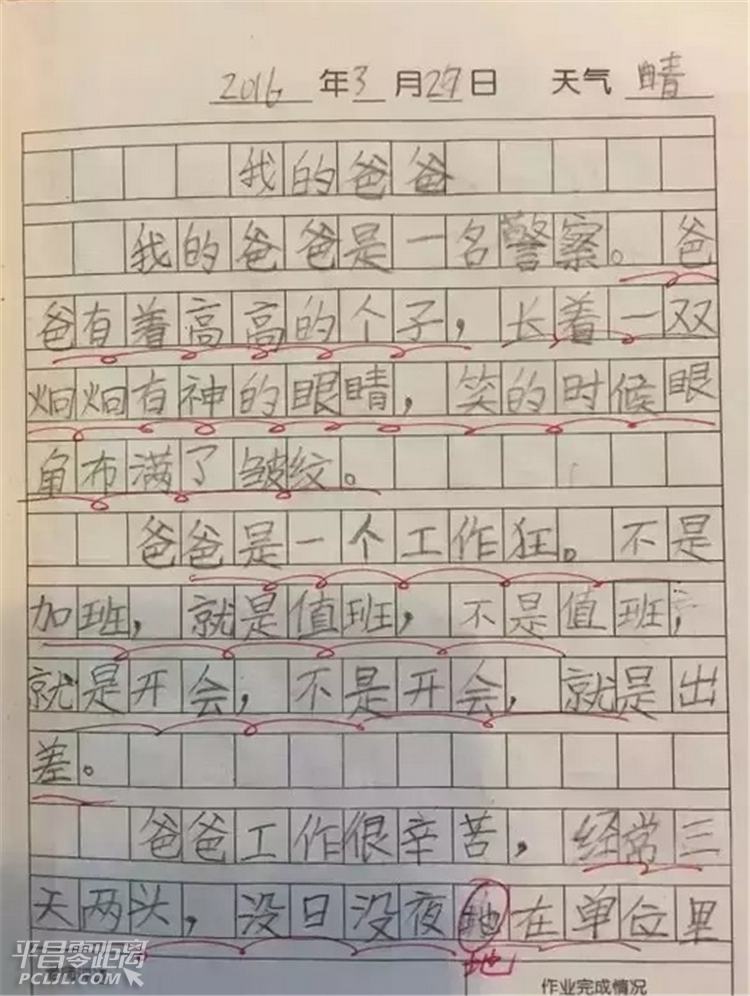 2016年3月27日 天气 晴
我的爸爸
我的爸爸是一名警察。爸
爸有着高高的个子，长着一双
炯炯有神的眼睛，笑的时候眼
角布满了皱纹。
爸爸是一个工作狂。不是
加班，就是值班，不是值班，
就是开会，不是开会，就是出
差。
爸爸工作很辛苦，经常三
天两头，没日没夜地在单位里
地
平昌零距离
PCLJL.COM
作业完成情况